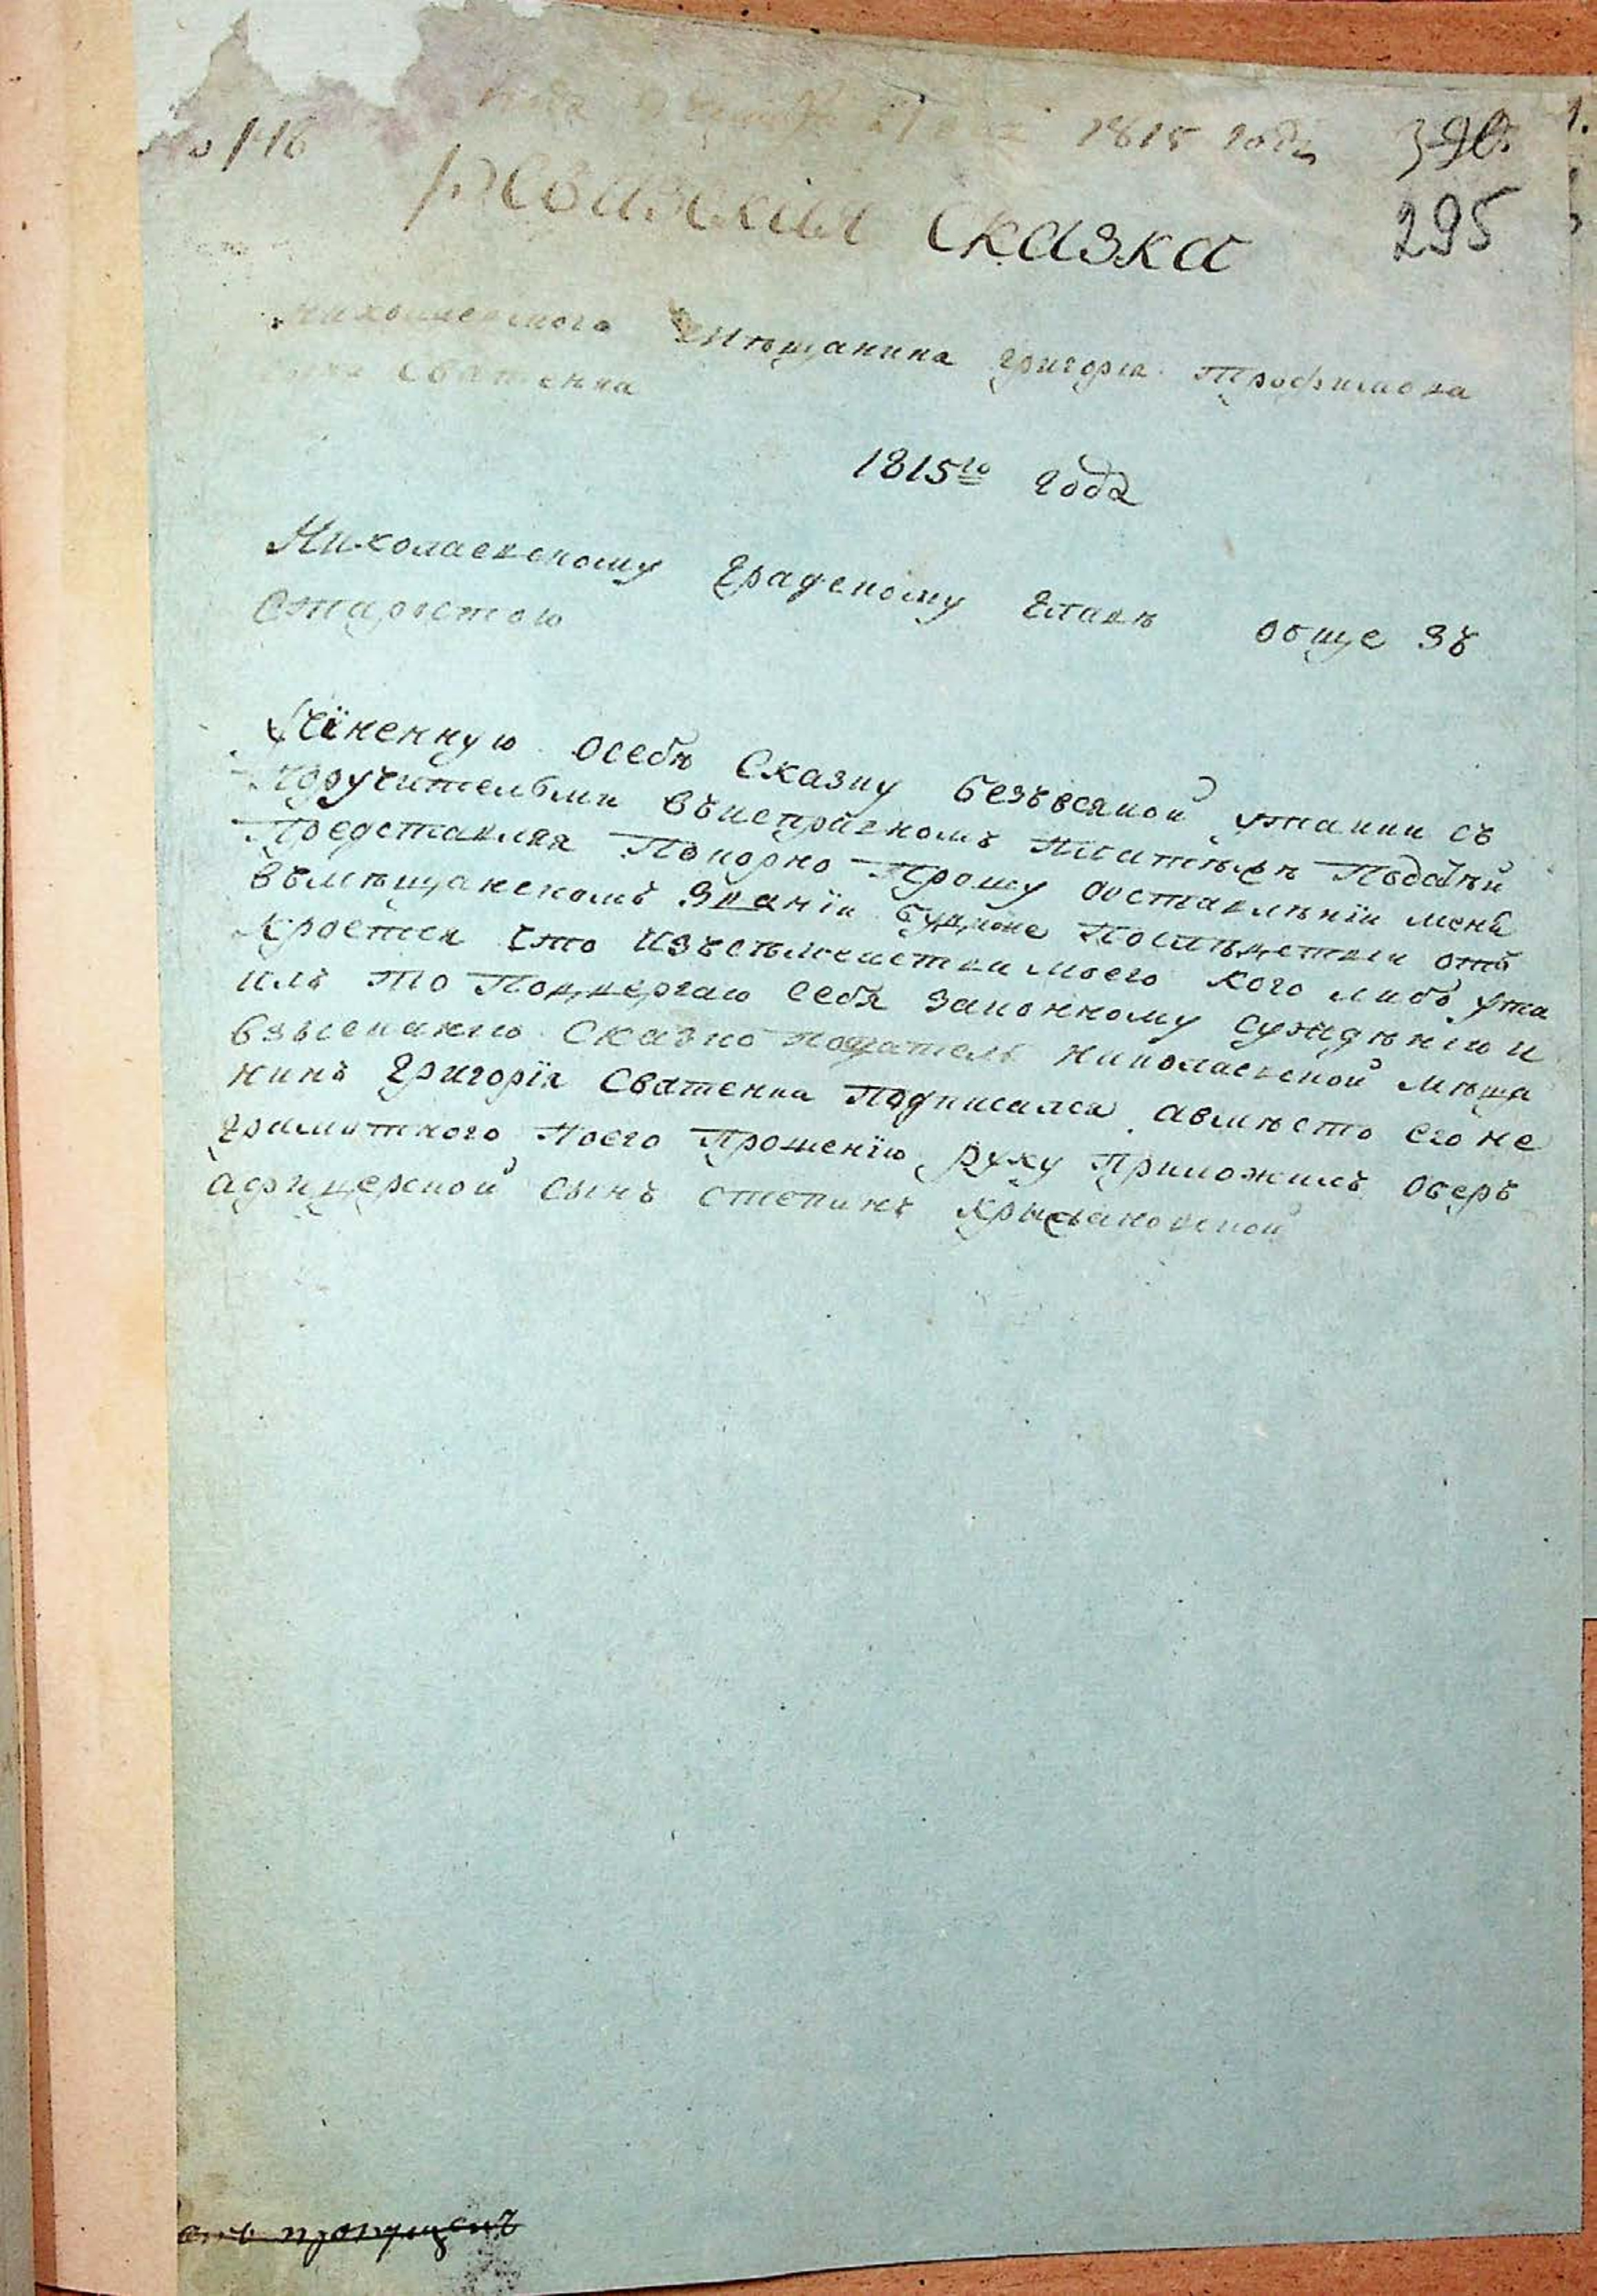 № 146
1815 года
390.
295
Ревизския Сказка
николаевского Мѣщанина Григорія Трофимова
сына Сватенка
1815го Года
Николаевскому Градскому Главѣ обще зъ
Старостою
Учïненную осебѣ Сказку безъвсякой утайки съ
Поручительми въисправномъ Платѣжѣ Податѣй
Представляя Покорно Прошу ооставлѣнïи меня
въмѣщанскомъ Званïи будеже Послѣдствïи отъ
кроется что изъсѣмейства моего кого либо ута
илъ то Подвергаю себя законному сужденïю и
взысканïю Сказко податель николаевской мѣща
нинъ Григорïй Сватенка Подписался авмѣсто его не
грамотного Поего Прошенïю руку приложилъ оберъ
афицерской сынъ степанъ крыжановской
пропущенъ